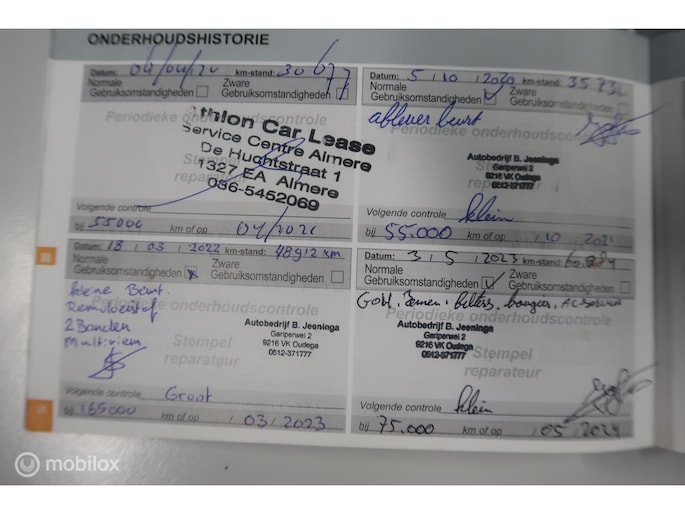 ONDERHOUDSHISTORIE
Datum: 04/04/20 km-stand: 30677
Normale Gebruiksomstandigheden Zware Gebruiksomstandigheden
Periodieke onderhoudscontrole
Athlon Car Lease
Service Centre Almere
De Huchtstraat 1
1327 EA Almere
036-5452069
Stempel
reparateur
Volgende controle
bij 55000 km of op 04/2021
Datum: 5/10/2020 km-stand:
Normale Gebruiksomstandigheden Zware Gebruiksomstandigheden
aflever beurt
Periodieke onderhoudscontrole
Autobedrijf B. Jeeninga
Gariperwei 2
9216 VK Oudega
0512-371777
Stempel
reparateur
Volgende controle klein
bij 55.000 km of op /10/2021
Datum: 18/03/2022 km-stand: 48912 km
Normale Gebruiksomstandigheden Zware Gebruiksomstandigheden
Kleine Beurt.
Periodieke onderhoudscontrole
Remvloeistof
2 Banden
Multiriem
Autobedrijf B. Jeeninga
Gariperwei 2
9216 VK Oudega
0512-371777
Stempel
reparateur
Volgende controle Groot
bij 65000 km of op /03/2023
Datum: 3/5/2023 km-stand:
Normale Gebruiksomstandigheden Zware Gebruiksomstandigheden
filters, bougies,
Periodieke onderhoudscontrole
Autobedrijf B. Jeeninga
Gariperwei 2
9216 VK Oudega
0512-371777
Stempel
reparateur
Volgende controle klein
bij 75.000 km of op /05/2024
mobilox